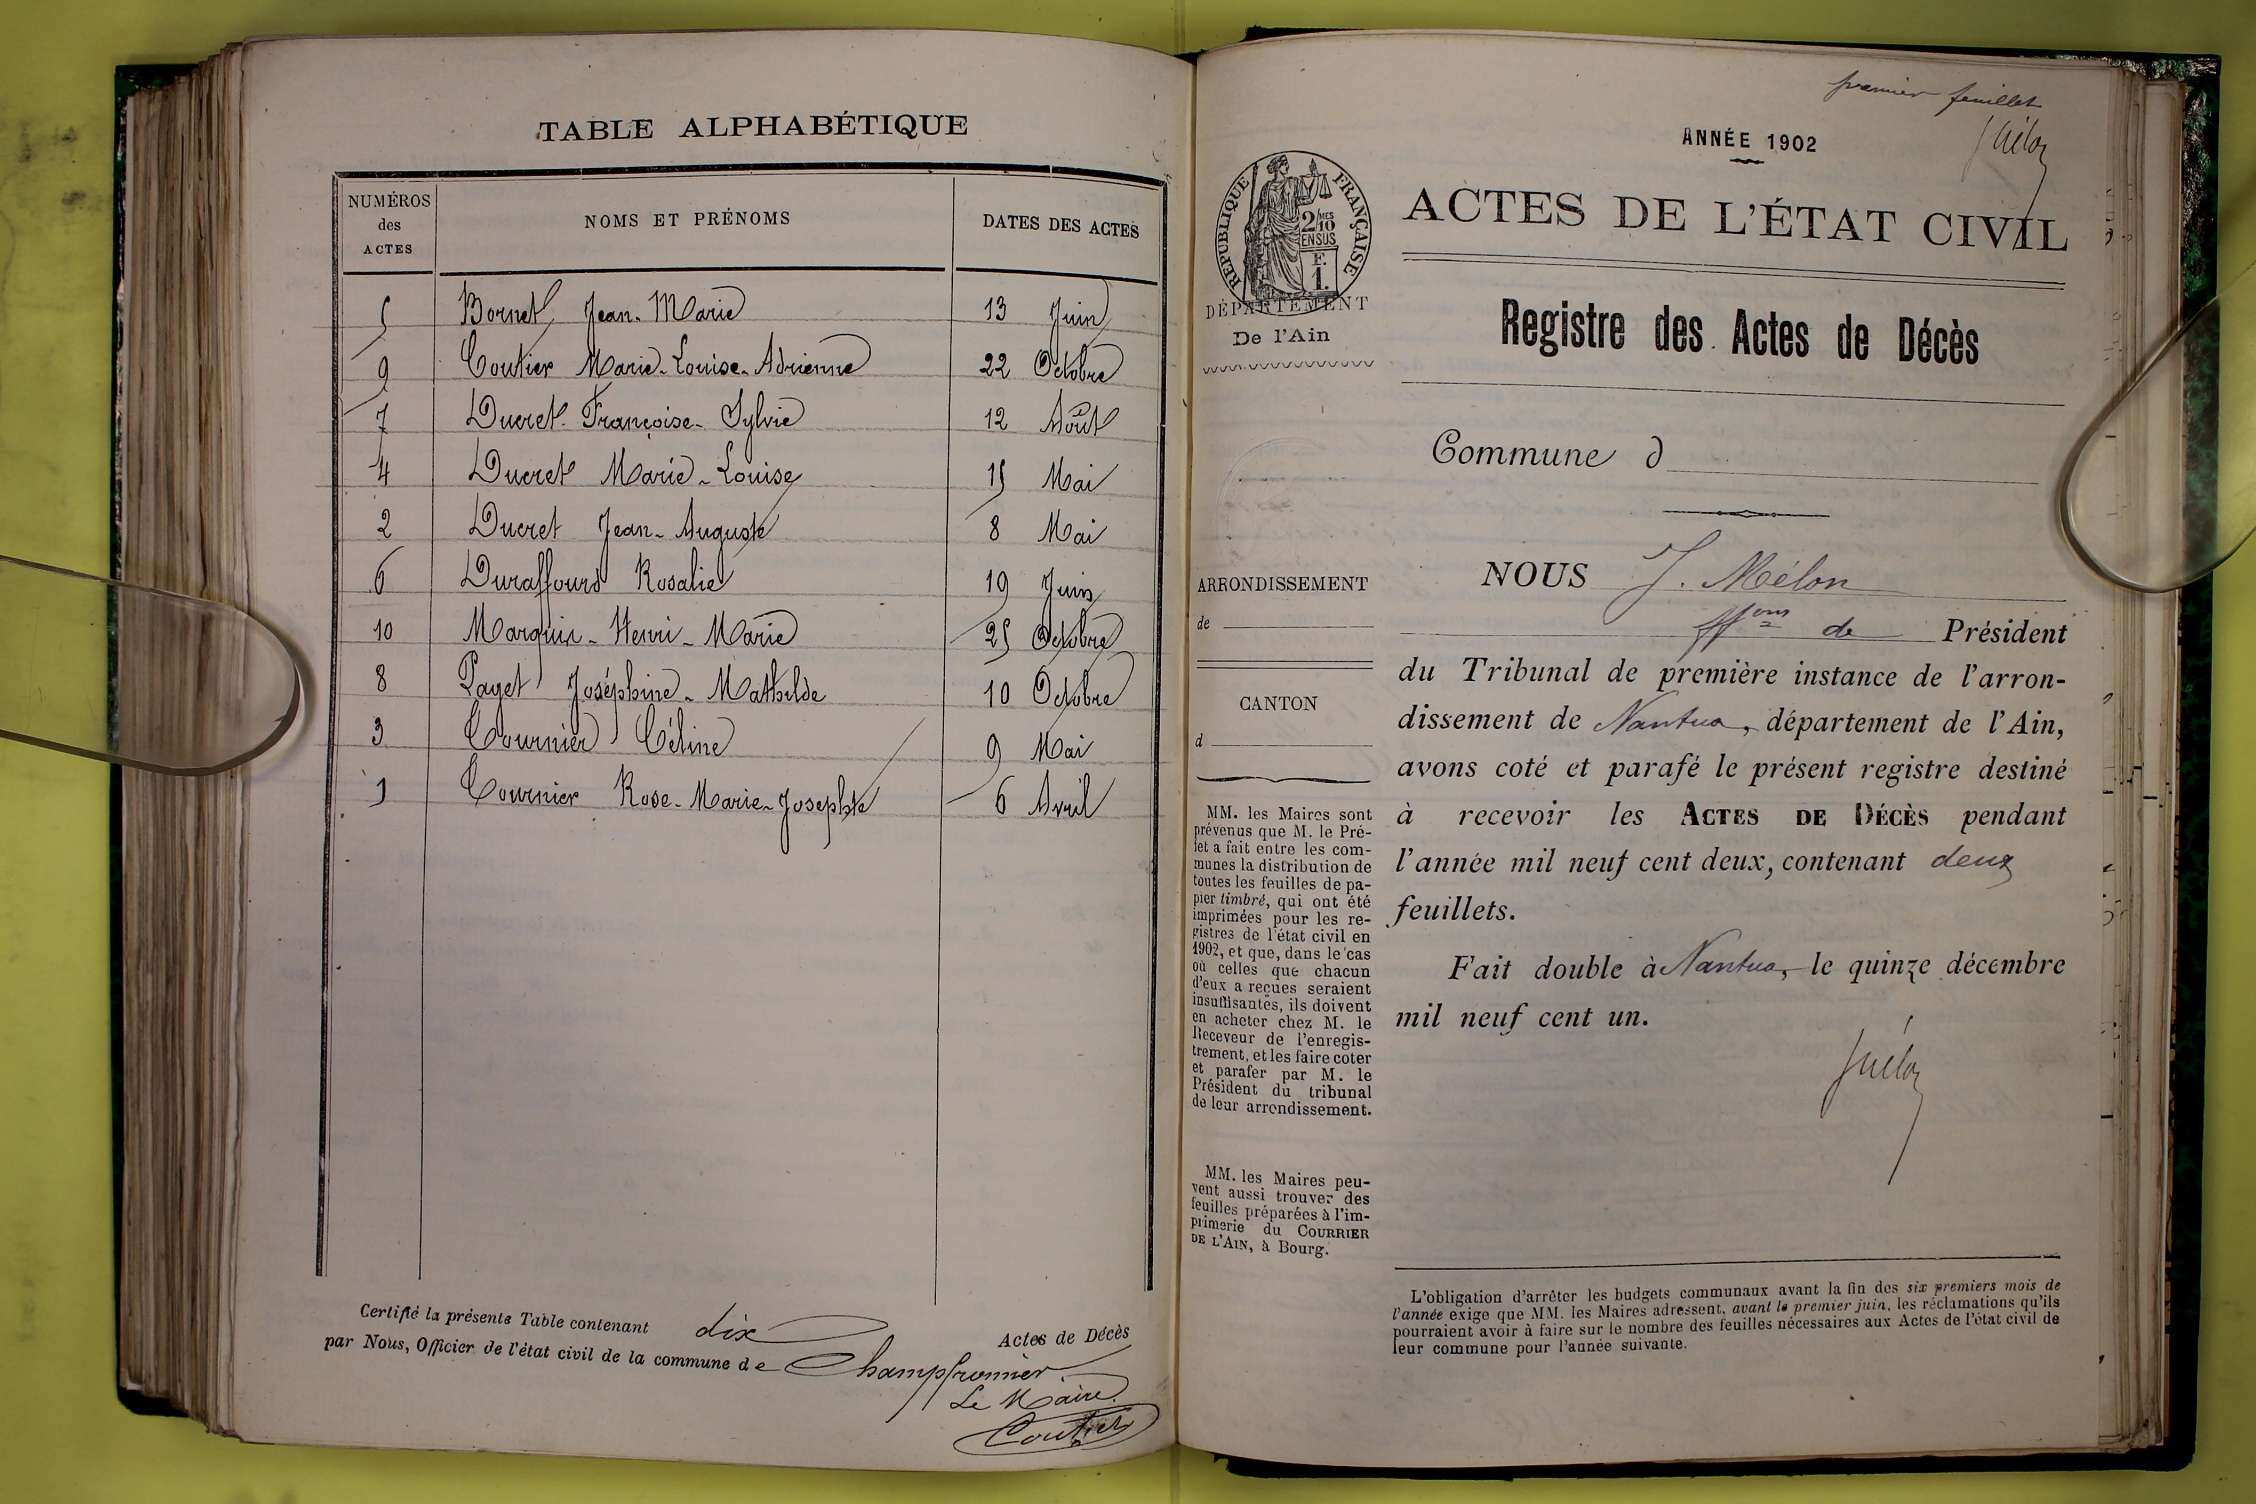 TABLE ALPHABÉTIQUE
NUMÉROS
des
ACTES
NOMS ET PRÉNOMS
DATES DES ACTES
5 Bornet Jean-Marie 13 Juin
9 Coutier Marie-Louise-Adrienne 22 Octobre
7 Ducret-Françoise-Sylvie 12 Août
4 Ducret Marie-Louise 15 Mai
2 Ducret Jean-Auguste 8 Mai
6 Duraffourd Rosalie 19 Juin
10 Marquis-Henri-Marie 25 Octobre
8 Paget Joséphine-Mathilde 10 Octobre
3 Tournier Céline 9 Mai
1 Tournier Rose-Marie-Josephte 6 Avril
Certifié la présente Table contenant dix Actes de Décès
par Nous, Officier de l'état civil de la commune de Champfromier
Le Maire
Coutier
premier feuillet
ANNÉE 1902
RÉPUBLIQUE FRANÇAISE
2/10
EN SUS
F.
1.
DÉPARTEMENT
De l'Ain
ACTES DE L'ÉTAT CIVIL
Registre des Actes de Décès
Commune d
ARRONDISSEMENT
de
CANTON
d
MM. les Maires sont
prévenus que M. le Pré-
fet a fait entre les com-
munes la distribution de
toutes les feuilles de pa-
pier timbré, qui ont été
imprimées pour les re-
gistres de l'état civil en
1902, et que, dans le cas
où celles que chacun
d'eux a reçues seraient
insuffisantes, ils doivent
en acheter chez M. le
Receveur de l'enregis-
trement, et les faire coter
et parafer par M. le
Président du tribunal
de leur arrondissement.
MM. les Maires peu-
vent aussi trouver des
feuilles préparées à l'im-
primerie du COURRIER
DE L'AIN, à Bourg.
NOUS J. Mélon
ffons de Président
du Tribunal de première instance de l'arron-
dissement de Nantua, département de l'Ain,
avons coté et parafé le présent registre destiné
à recevoir les ACTES DE DÉCÈS pendant
l'année mil neuf cent deux, contenant deux
feuillets.
Fait double à Nantua, le quinze décembre
mil neuf cent un.
L'obligation d'arrêter les budgets communaux avant la fin des six premiers mois de
l'année exige que MM. les Maires adressent, avant le premier juin, les réclamations qu'ils
pourraient avoir à faire sur le nombre des feuilles nécessaires aux Actes de l'état civil de
leur commune pour l'année suivante.